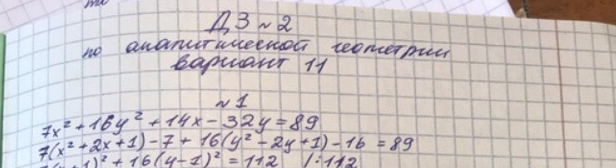 ДЗ №2
по аналитической геометрии
вариант 11
№1
7x² + 16y² + 14x - 32y = 89
7(x² + 2x + 1) - 7 + 16(y² - 2y + 1) - 16 = 89
7(x+1)² + 16(y-1)² = 112 /:112